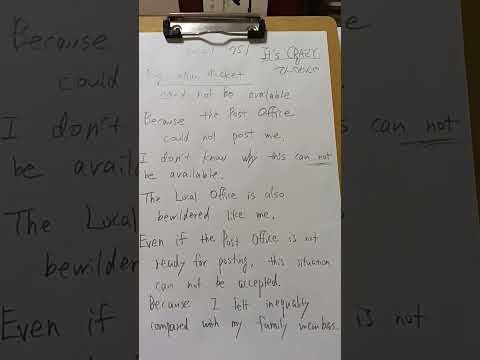 It's CRAZY.
ticket
could not be available
Because the Post Office
could not post me.
I don't know why this can not
be available.
The Local Office is also
bewildered like me.
Even if the Post Office is not
ready for posting, this situation
can not be accepted.
Because I felt inequably
compared with my family members.